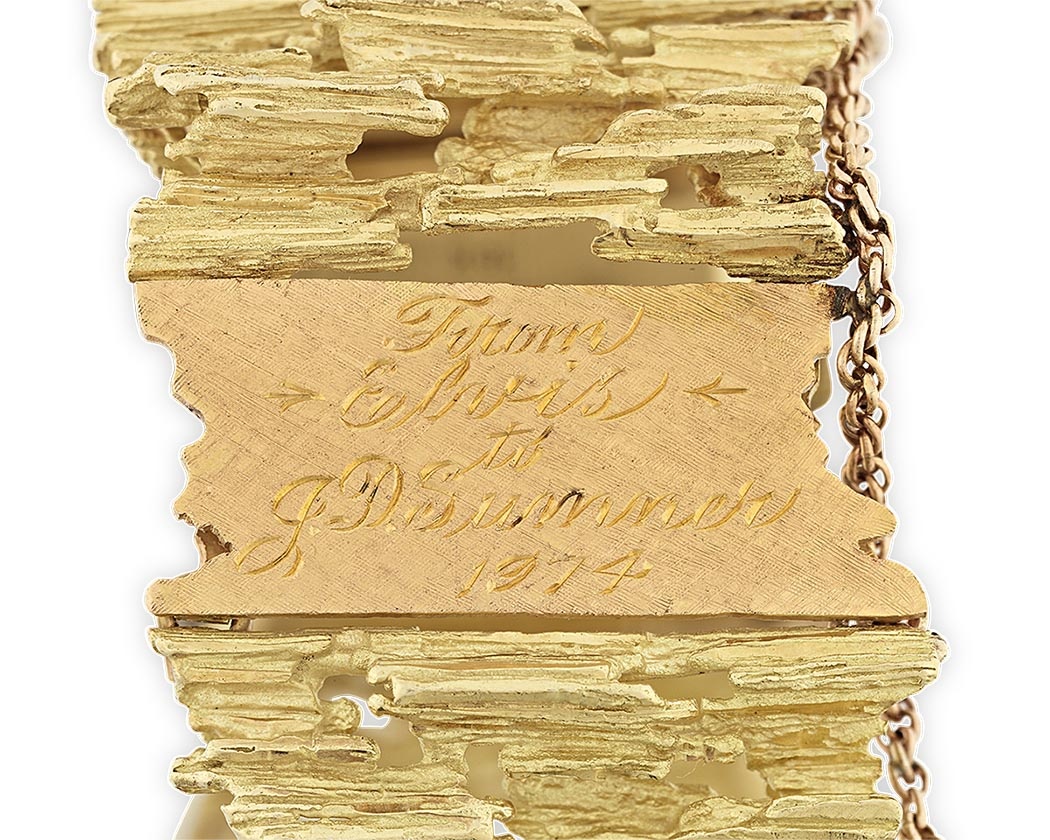 From
Elvis
to
J.D. Sumner
1974